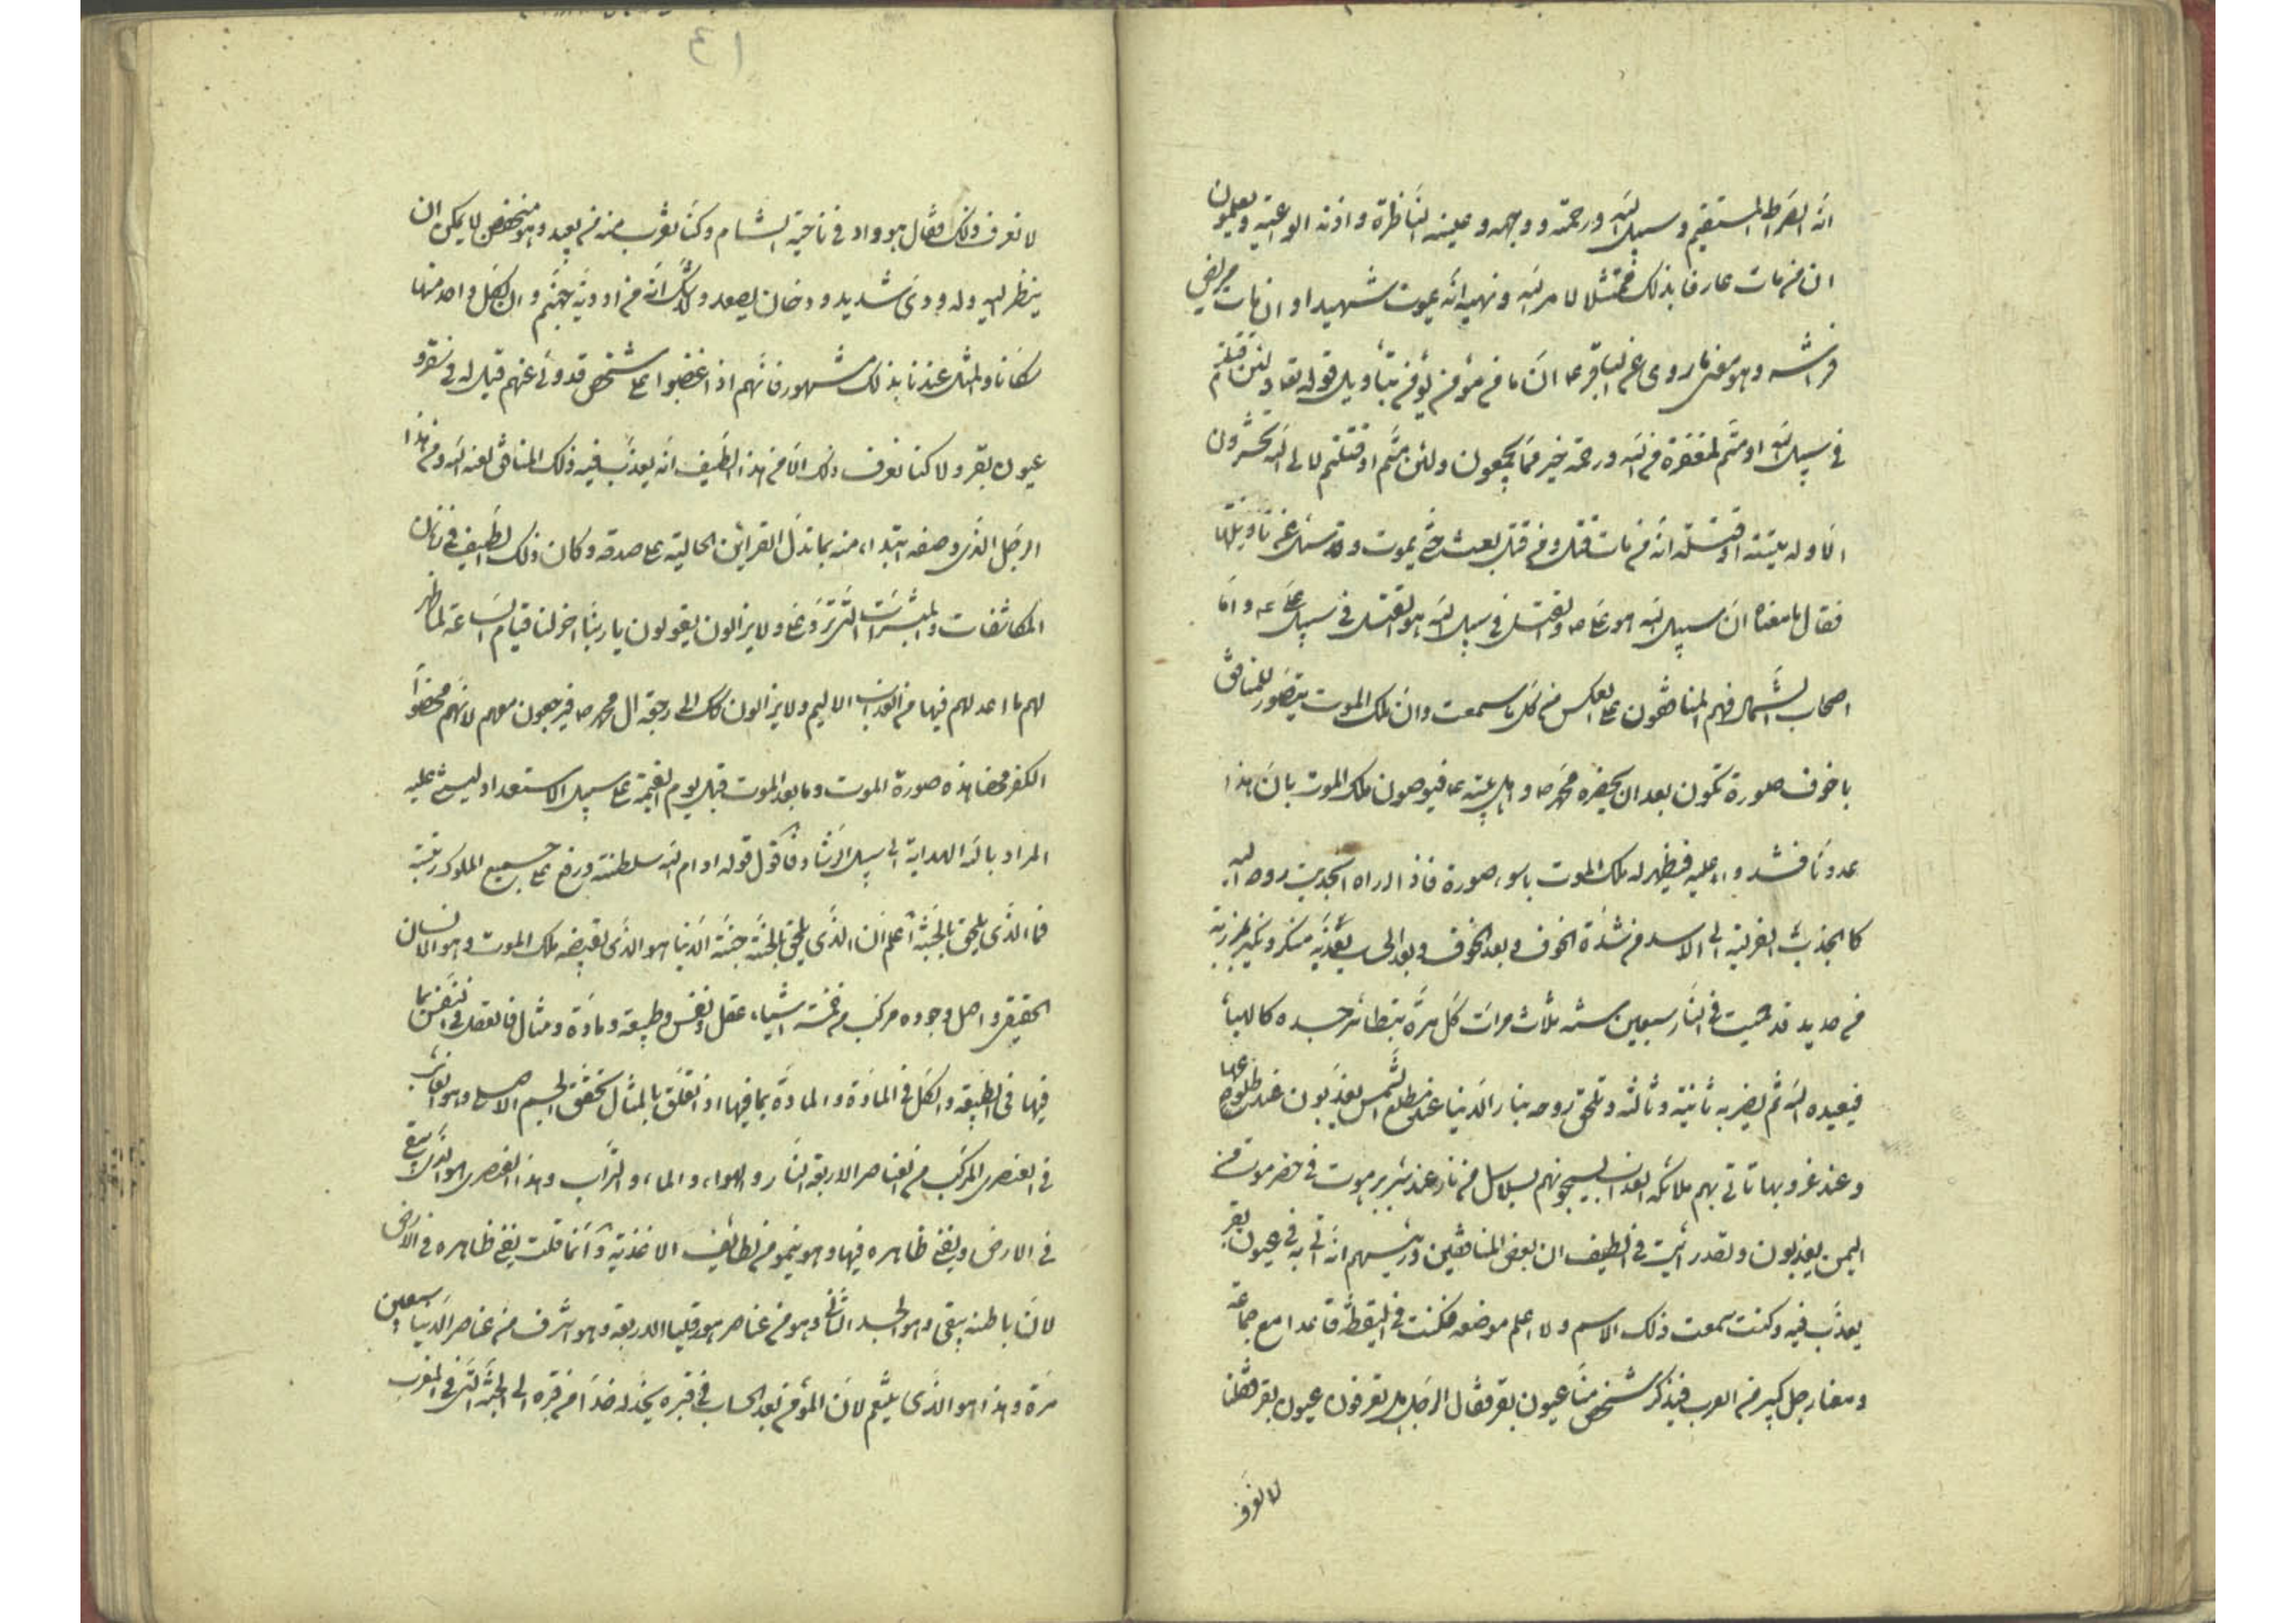 انه الصراط المستقيم وسبيل الله ورحمته ووجهه وعينه الناظرة واذنه الواعية ويعلمون
ان من مات عارفا بذلك ممتثلا لامر الله ونهيه انه يموت شهيدا وان مات على
فراشه وهو معنى ما روى عن الباقر ع ان ما من مؤمن يؤمن بتأويل قوله تعالى ولئن قتلتم
في سبيل الله او متم لمغفرة من الله ورحمة خير مما يجمعون ولئن متم او قتلتم لالى الله تحشرون
الا وله ميتته او قتلته انه من مات قتل ومن قتل بعث حتى يموت وقد سئل عن تأويلها
فقال ما معناه ان سبيل الله هو على ص والقتل في سبيل الله هو القتل في سبيل على ع واما
اصحاب الشمال فهم المنافقون على العكس من كل ما سمعت وان ملك الموت يتصور للمنافق
باخوف صورة تكون بعد ان يحضره محمد ص واهل بيته ع فيوصون ملك الموت بان هذا
عدونا فشددوا عليه فيظهر له ملك الموت باسوء صورة فاذا راه انجذبت روحه اليه
كا انجذب الفريسة الى الاسد من شدة الخوف وبعد الخوف وبعد الحساب يعذبه منكر ونكير بمرزبة
من حديد قد حميت في النار سبعين سنة ثلاث مرات كل مرة يتطاير جسده كالهباء
فيعيده الله ثم يضربه ثانية وثالثة وتلحق روحه بنار الدنيا عند مطلع الشمس يعذبون عند طلوعها
وعند غروبها تاتى بهم ملائكة العذاب يسحبونهم بسلاسل من نار عند بئر برهوت في حضرموت من
اليمن يعذبون ولقد رايت في الطيف ان بعض المنافقين ورئيسهم انه اتى به في عيون بقر
يعذب فيه وكنت سمعت ذلك الاسم ولا اعلم موضعه فكنت في اليقظة قاعدا مع جماعة
ومعنا رجل كبير من العرب فيذكر شخص منا عيون بقر فقال الرجل هل تعرفون عيون بقر فقلنا
لا نعرف
٤١
لا نعرف ذلك فقال هو واد في ناحية الشام وكنا نقرب منه من بعيد وهو منخفض لا يمكن ان
ينظر اليه وله دوى شديد ودخان يصعد ولا شك انه من اودية جهنم وان لكل واحد منها
مكانا والمثل عندنا بذلك مشهور فانهم اذا غضبوا على شخص قد ولى عنهم قيل له في سقر و
عيون بقر ولا كنا نعرف ذلك الا من هذا الطيف انه يعذب فيه ذلك المنافق لعنه الله ومن هذا
الرجل الذى وصفه ابتداء منه بما تدل القرائن الحالية على صدقه وكان ذلك الطيف في زمان
المكاشفات والمبشرات التى ترد على ولا يزالون يقولون يا ربنا اخر لنا قيام الساعة لما ظهر
لهم ما اعد لهم فيها من العذاب الاليم ولا يزالون كذلك الى رجعة ال محمد ص فيرجعون معهم لانهم محضوا
الكفر محضا هذه صورة الموت وما بعد الموت قبل يوم القيمة على سبيل الاستعداد ليستعد عليه
المراد بالله الهداية الى سبيل الرشاد فاقول قوله ادام الله سلطنته ورفع على جميع الملوك رتبته
فما الذى يلحق بالجنة اعلم ان الذى يلحق بالجنة جنة الدنيا هو الذى يقبضه ملك الموت وهو الانسان
الحقيقى واصل وجوده مركب من خمسة اشياء عقل ونفس وطبيعة ومادة ومثال فالعقل في النفس بما
فيها في الطبيعة والكل في المادة والمادة بما فيها اذا تعلق بالمثال تحقق الجسم الاصلى وهو الغائب
في العنصرى المركب من العناصر الاربعة النار والهواء والماء والتراب وهذا العنصرى هو الذى يبقى
في الارض ويفنى ظاهره فيها وهو ينمو من لطائف الاغذية وانما قلت يفنى ظاهره في الارض
لان باطنه يبقى وهو الجسد الثانى وهو من عناصر هورقليا الاربعة وهو اشرف من عناصر الدنيا سبعين
مرة وهذا هو الذى يتنعم لان المؤمن بعد الحساب في قبره يخد له خدا من قبره الى الجنة التى في المغرب